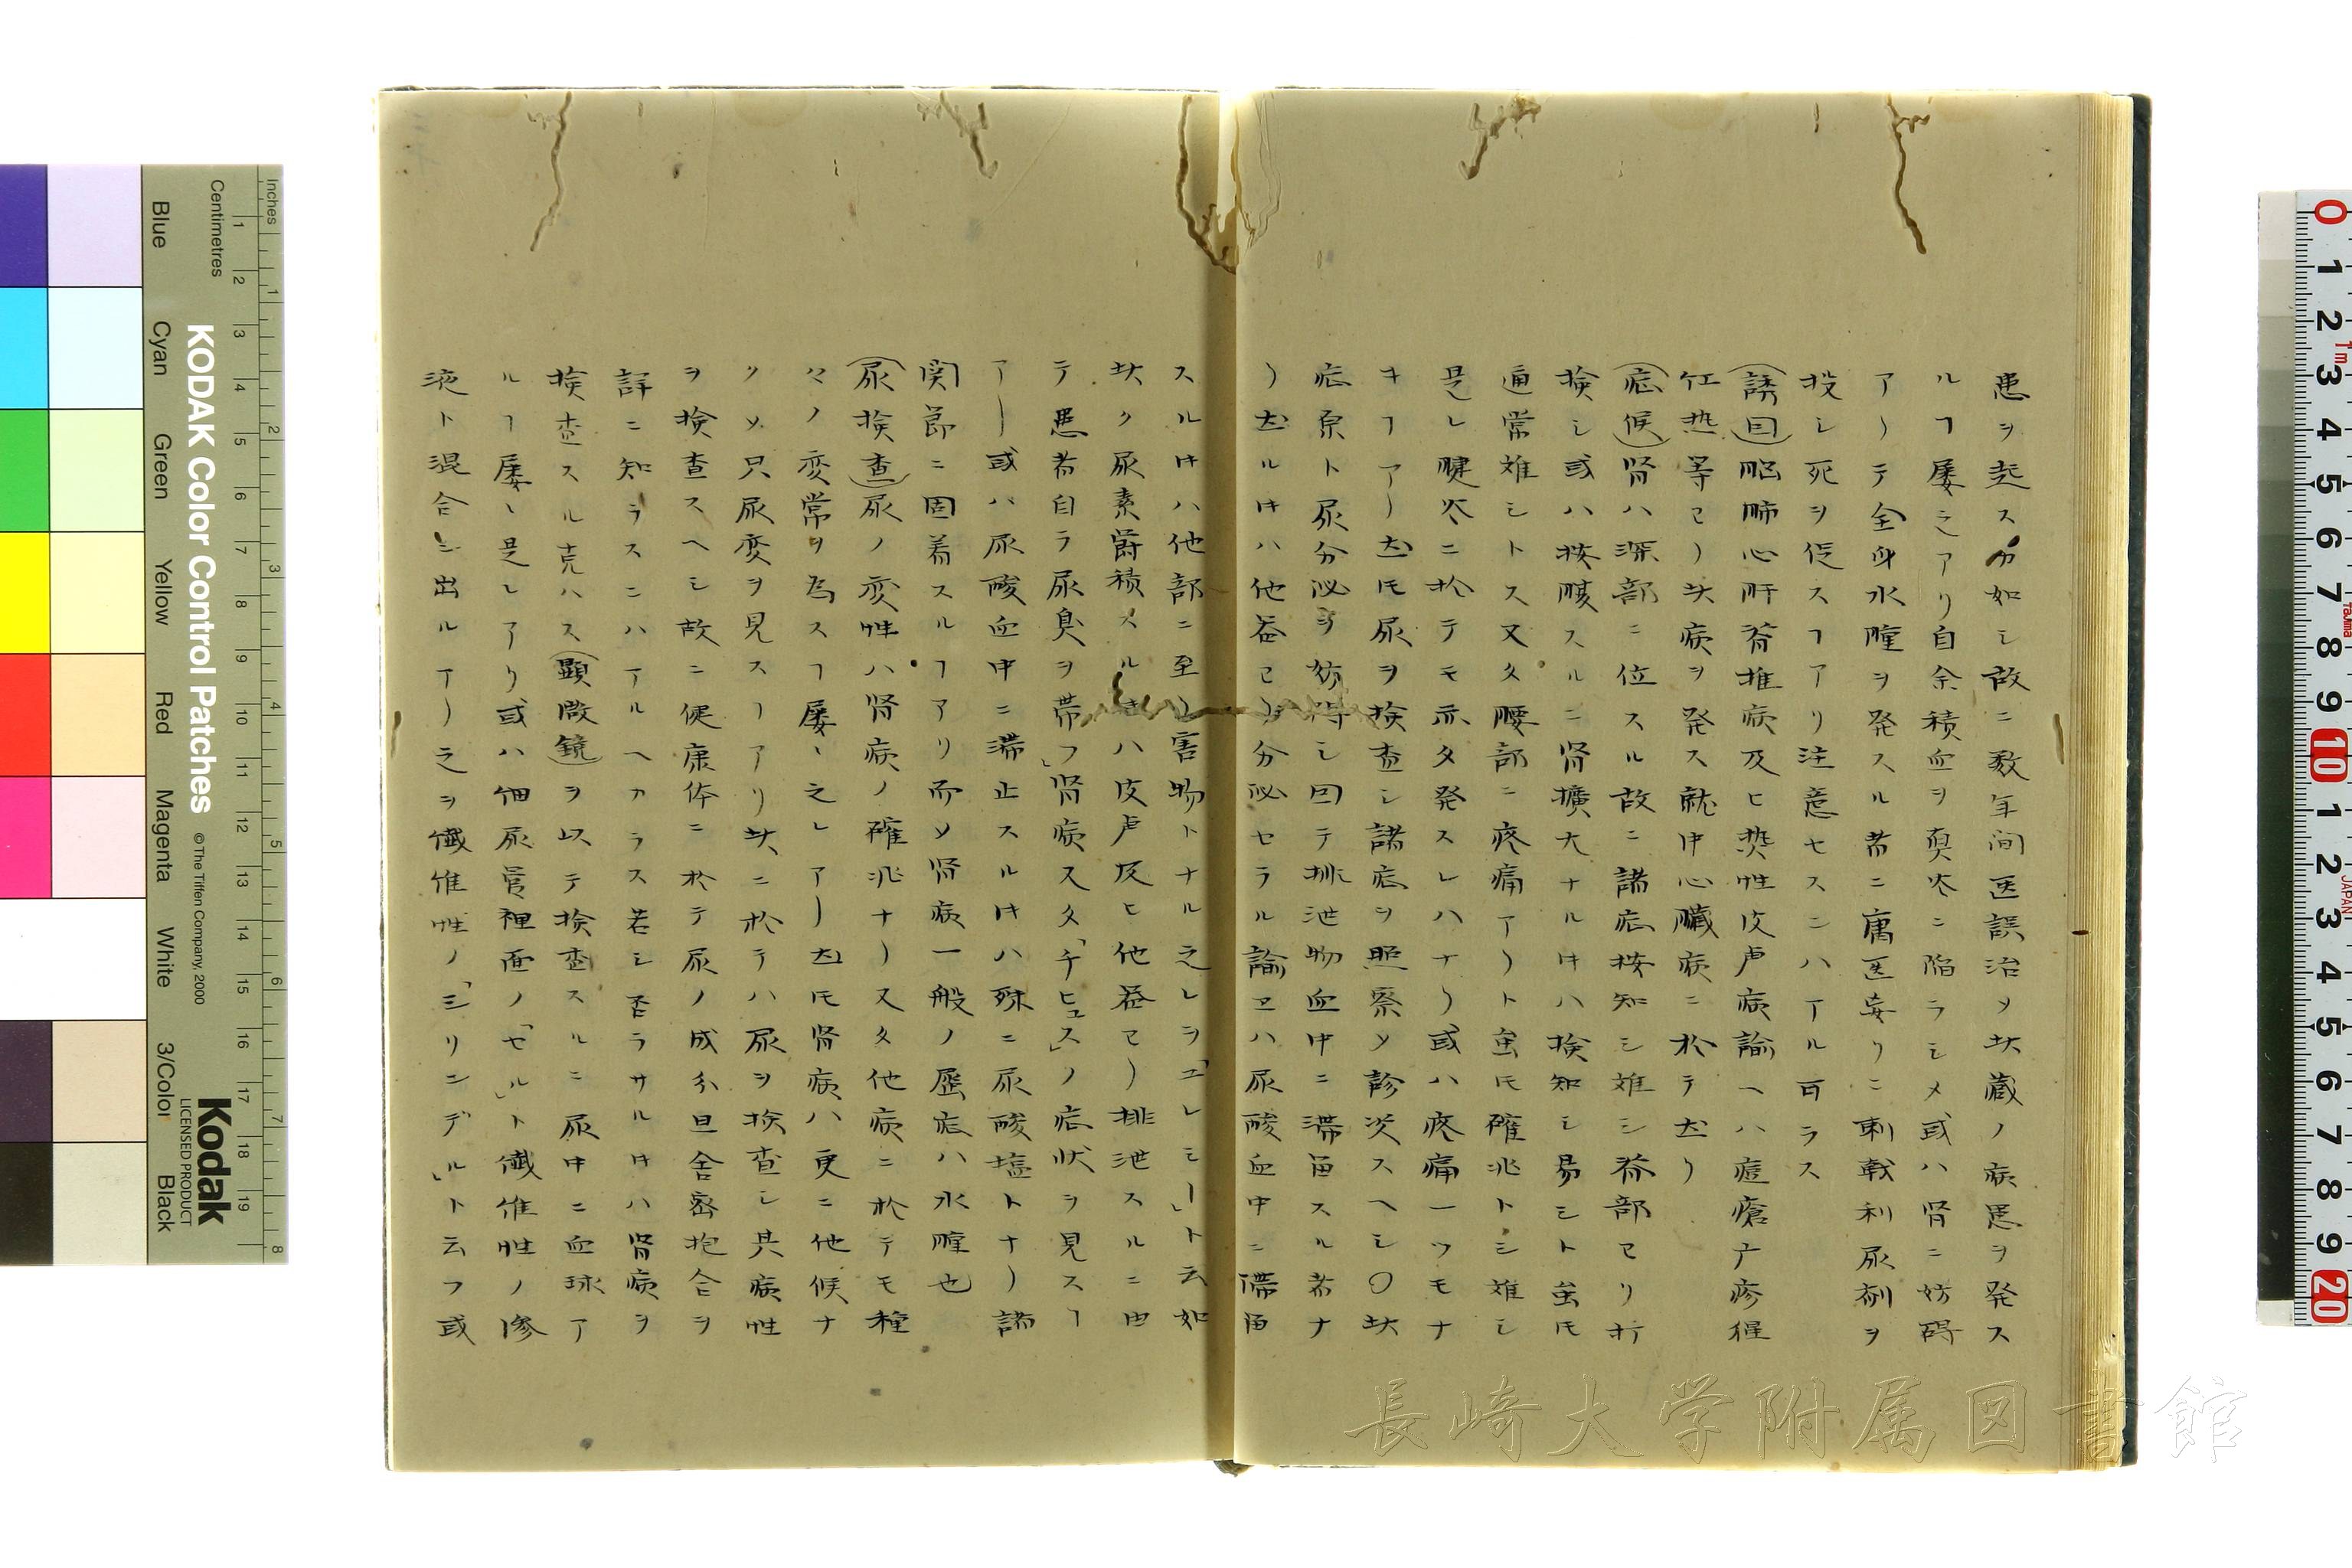 患ヲ起ス分如シ故ニ数年间医誤治メ圤蔵ノ病患ヲ発ス
ルヿ屡之アリ自余積血ヲ真炎ニ陥ラシメ或ハ腎ニ妨碍
アリテ全身水腫ヲ発スル者ニ庸医妄リニ刺戟利尿剤ヲ
投シ死ヲ促スヿアリ注意セスンハアル可ラス
(誘因)脳肺心肝脊推病及ヒ焮性皮膚病諭ヘハ痘瘡疹猩
红热等ヨリ病ヲ発ス就中心臓病ニ於テ尤リ
(症候)腎ハ深部ニ位スル故ニ諸症按知シ难シ脊部ヨリ打
検シ或ハ按腹スルニ腎擴大ナルキハ検知シ易シト虽𪜈
通常难シトス又タ腰部ニ疼痛アリト虽𪜈確兆トシ难シ
是レ腱炎ニ於テモ亦タ発スレハナリ或ハ疼痛一ツモナ
キヿアリ𪜈尿ヲ検查シ諸症ヲ照察メ診决スヘシ〇
症原ト尿分泌ヲ妨碍シ因テ排泄物血中ニ滞留スル者ナ
リルキハ他器ヨリ分泌セラル諭ヨハ尿酸血中ニ滞留
スルキハ他部ニ至リ害物トナル之レヲ「ユレミー」ト云如
ク尿素爵積メル時ハ皮膚及ヒ他器ヨリ排泄スルニ由
テ患者自ラ尿臭ヲ帯フ」腎病又タ「チヒュス」ノ症状ヲ見スヿ
アリ或ハ尿酸血中ニ滞止スルキハ殊ニ尿酸塩トナリ諸
関節ニ固着スルヿアリ而メ腎病一般ノ歴症ハ水腫也
(尿検査)尿ノ変性ハ腎病ノ確兆ナリ又タ他病ニ於テモ種
々ノ変常ヲ為スヿ屡〻之レアリ𪜈腎病ハ更ニ他候ナ
クメ只尿変ヲ見スヿアリ故ニ於テハ尿ヲ検査シ其病性
ヲ検査スヘシ故ニ健康体ニ於テ尿ノ成分且舎密抱合ヲ
詳ニ知ラスンハアルヘカラス若シ否ラサルキハ腎病ヲ
検查スル克ハス(顕微鏡)ヲ以テ検查スルニ尿中ニ血球ア
ルヿ屡〻是レアリ或ハ細尿管裡面ノ「セル」ト繊維性ノ滲
液ト混合シ出ルアリ之ヲ繊維性ノ「シリンデル」ト云フ或
長崎大学附属図書館
KODAK Color Control Patches
© The Tiffen Company, 2000
Kodak
LICENSED PRODUCT
Inches
Centimetres
Blue
Cyan
Green
Yellow
Red
Magenta
White
3/Color
Black
JAPAN